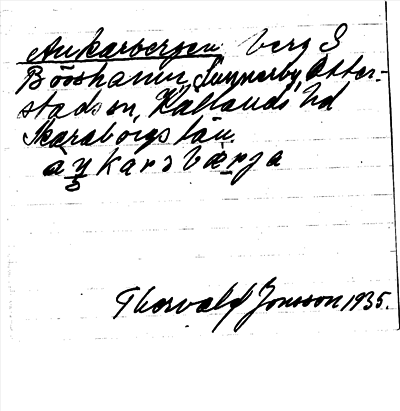 Ankarbergen berg S
Bööshamn, Sunnerby, Otter-
stads sn, Kållands hd
Skaraborgs län.
aŋkarsbærja
Thorvald Jonsson 1935.